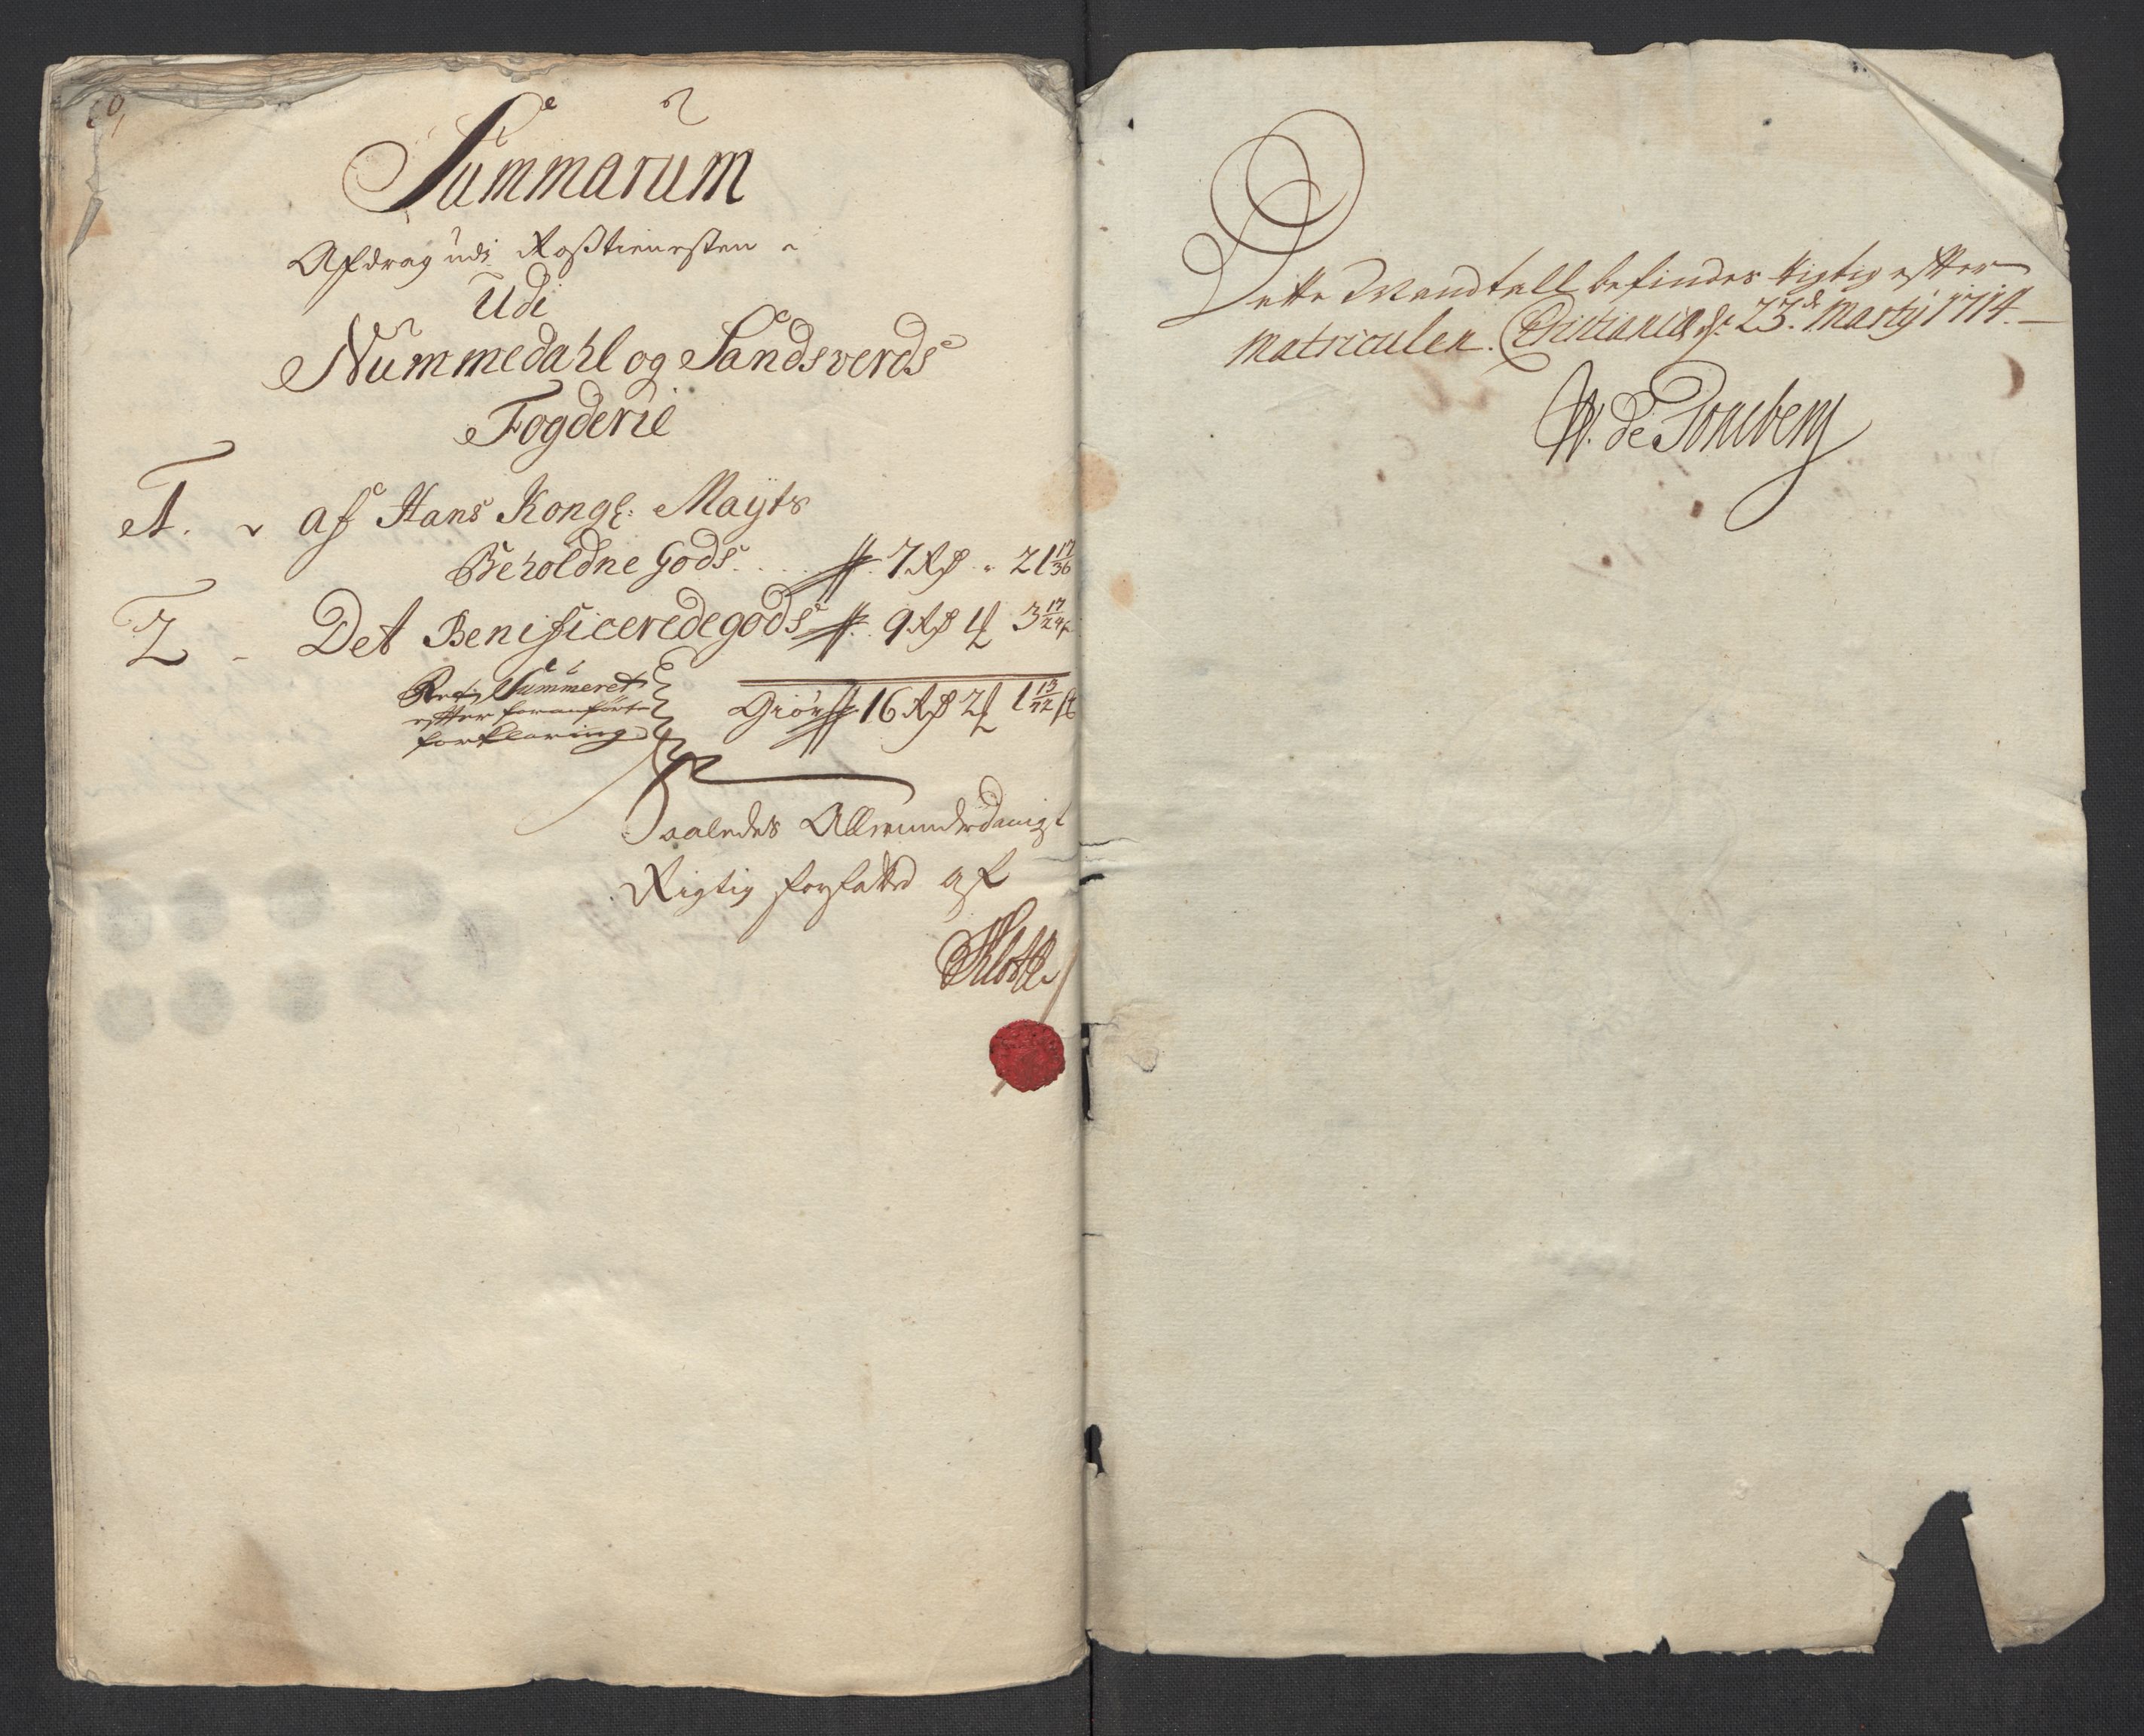 Summarum
Afdrag udi Rostienesten
Udi
Nummedahl og Sandsverds
Fogderie
1. af Hans Kongl: Mayts
Beholdne Gods . . . 7 Rd - 21 17/36
2 - Det Benificerede gods 9 Rd 1 3 17/24
Summeret
efter foranførte
forklaring
Giør 16 Rd 2 1 13/72
Saaledes Allerunderdanigst
Rigtig forfatted af
Dette Mandtall befindes rigtig effter
Matriculen. Christiania d: 23de Martij 1714.